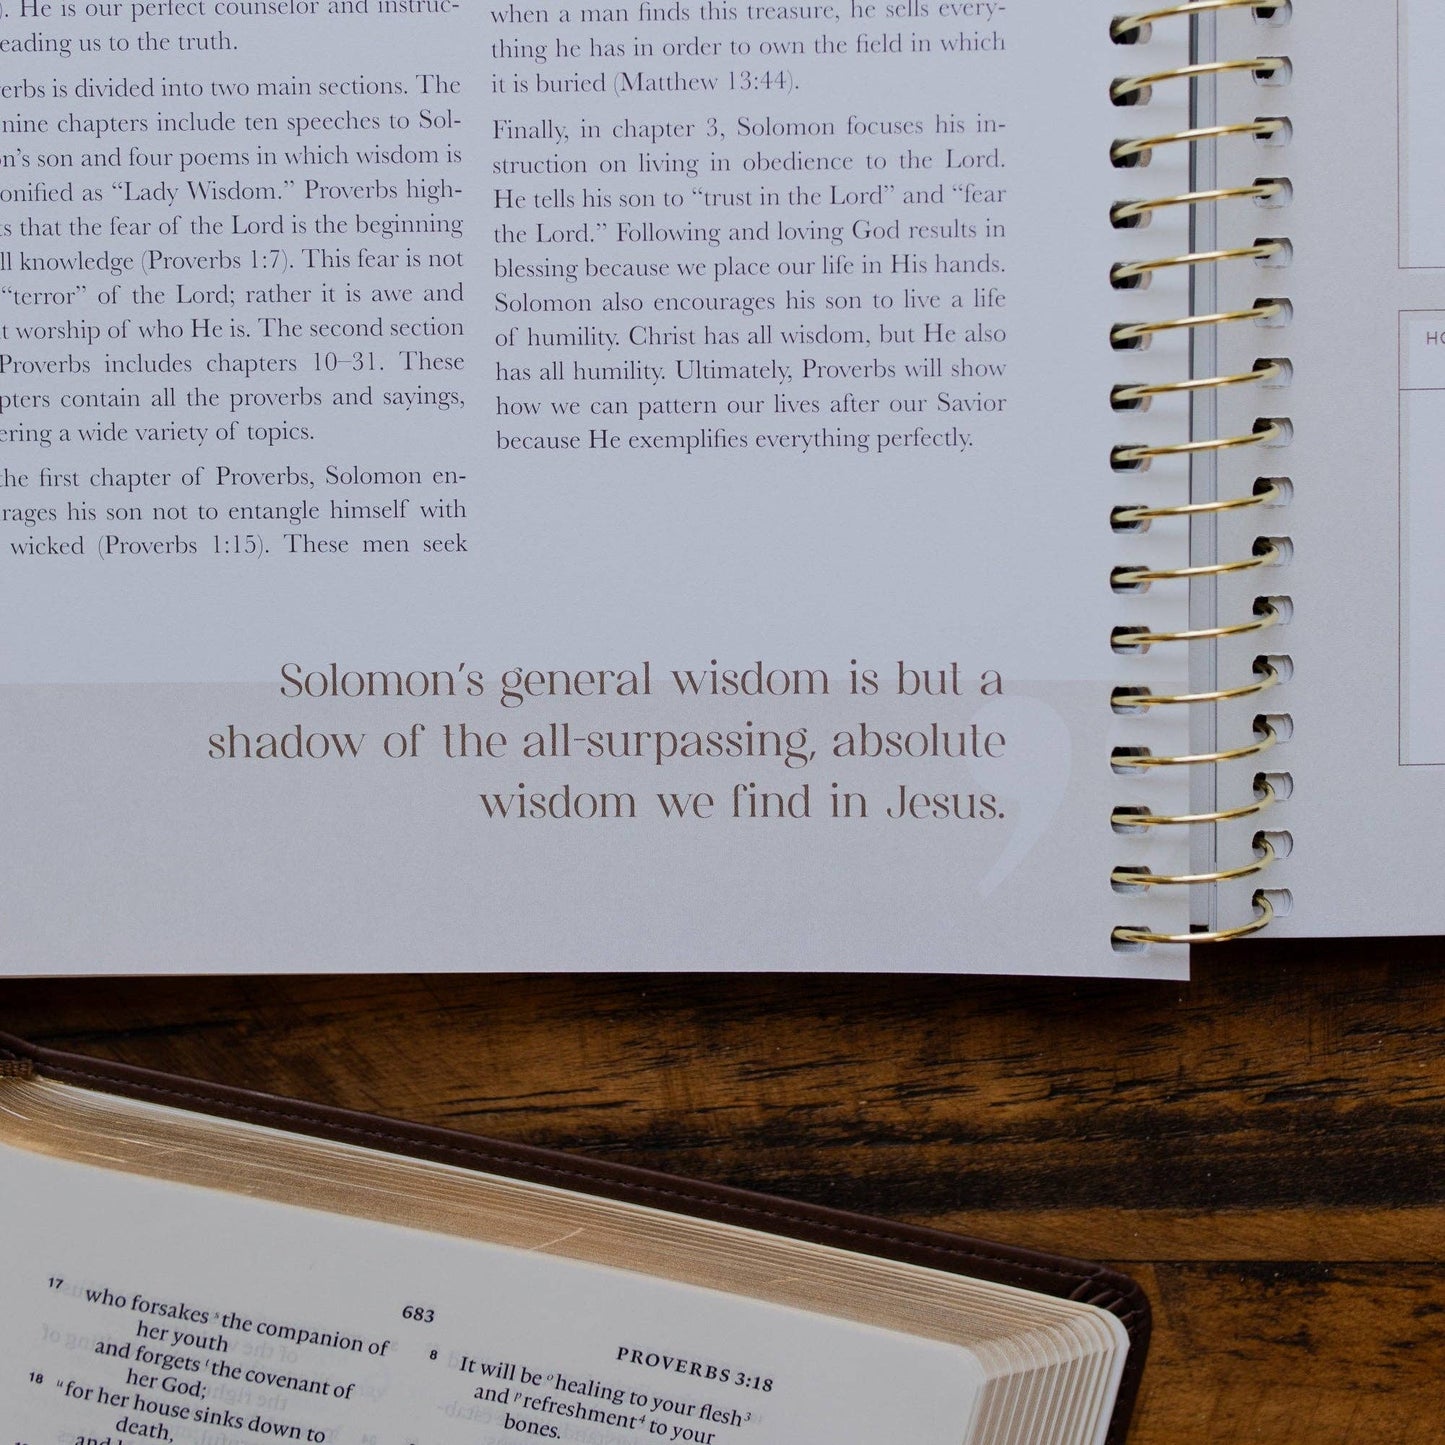 . He is our perfect counselor and instruc-
eading us to the truth.
erbs is divided into two main sections. The
nine chapters include ten speeches to Sol-
on's son and four poems in which wisdom is
onified as “Lady Wisdom.” Proverbs high-
s that the fear of the Lord is the beginning
ll knowledge (Proverbs 1:7). This fear is not
“terror” of the Lord; rather it is awe and
t worship of who He is. The second section
Proverbs includes chapters 10–31. These
pters contain all the proverbs and sayings,
ering a wide variety of topics.
the first chapter of Proverbs, Solomon en-
rages his son not to entangle himself with
wicked (Proverbs 1:15). These men seek
when a man finds this treasure, he sells every-
thing he has in order to own the field in which
it is buried (Matthew 13:44).
Finally, in chapter 3, Solomon focuses his in-
struction on living in obedience to the Lord.
He tells his son to “trust in the Lord” and “fear
the Lord.” Following and loving God results in
blessing because we place our life in His hands.
Solomon also encourages his son to live a life
of humility. Christ has all wisdom, but He also
has all humility. Ultimately, Proverbs will show
how we can pattern our lives after our Savior
because He exemplifies everything perfectly.
Solomon's general wisdom is but a
shadow of the all-surpassing, absolute
wisdom we find in Jesus.
HO
683
PROVERBS 3:18
17 who forsakes ˢthe companion of
her youth
and forgets ᵗthe covenant of
her God;
18 ᵘfor her house sinks down to
death,
8 It will be ᵒhealing to your flesh³
and ᵖrefreshment⁴ to your
bones.